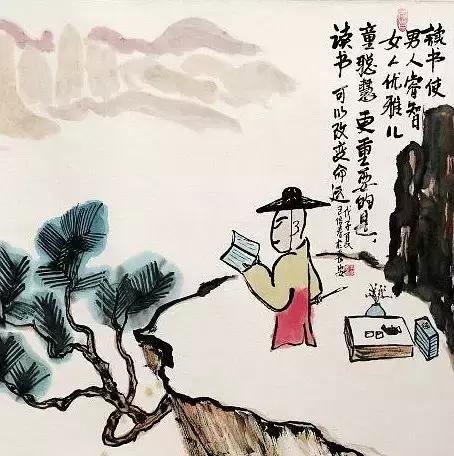 读书使
男人睿智
女人优雅儿
童聪慧更重要的是
读书可以改变命运
戊子夏